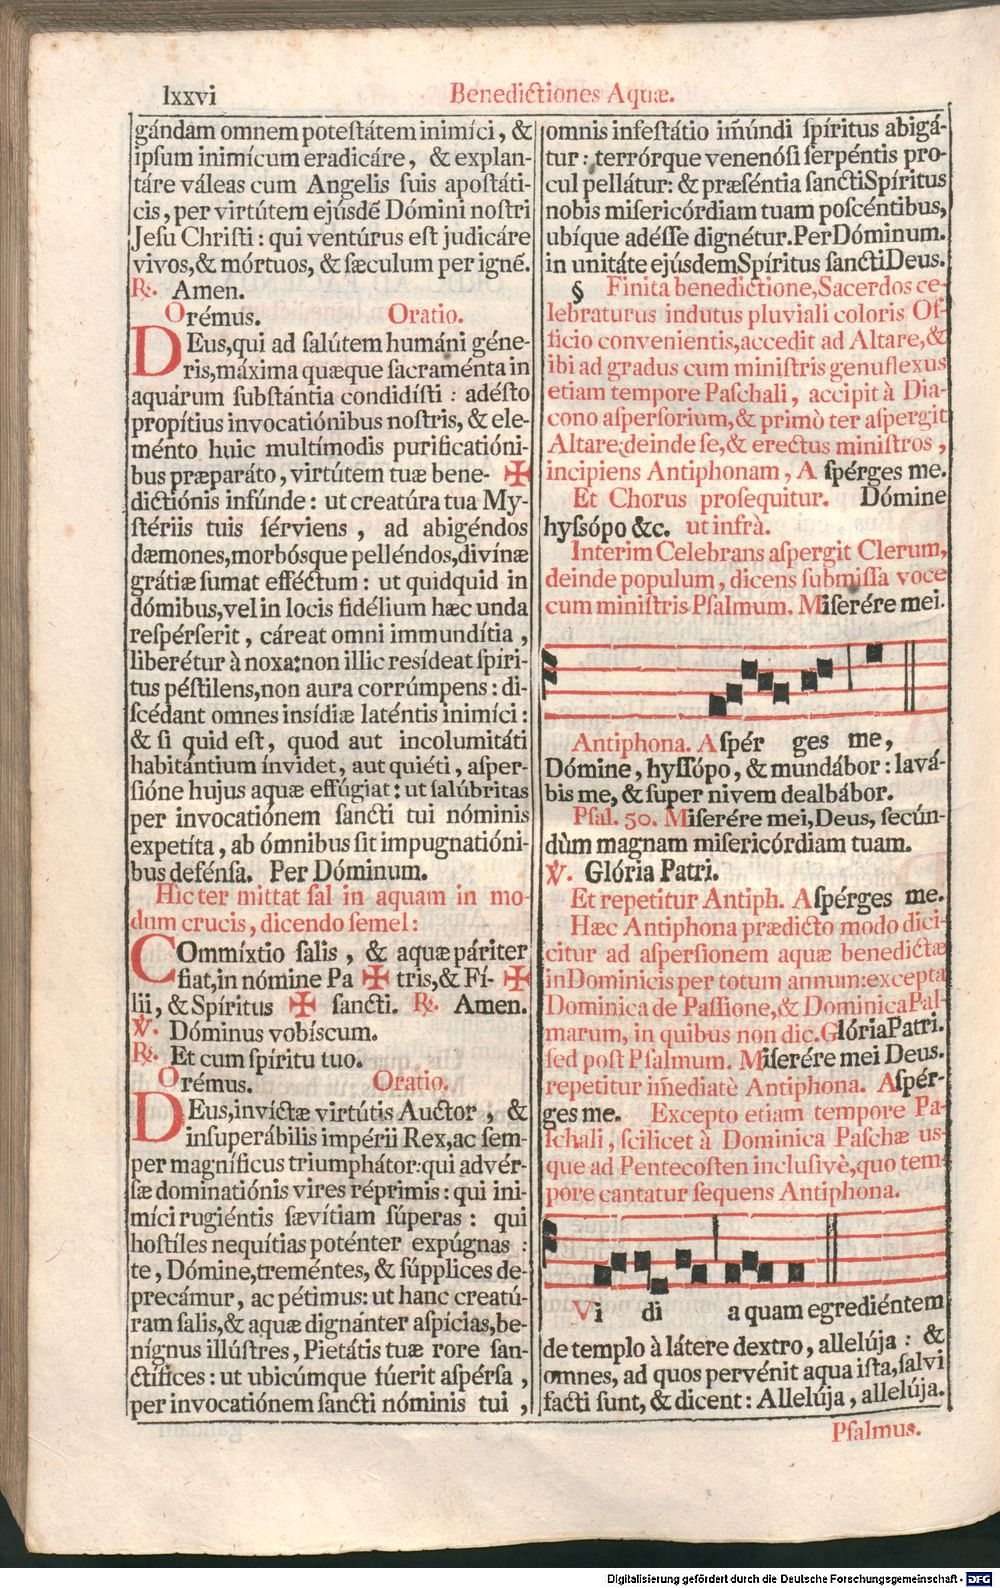 lxxvi
Benedictiones Aquæ.
gándam omnem poteſtátem inimíci, &
ipſum inimícum eradicáre, & explan-
táre váleas cum Angelis ſuis apoſtáti-
cis, per virtútem ejúsdẽ Dómini noſtri
Jeſu Chriſti: qui ventúrus eſt judicáre
vivos,& mórtuos, & ſæculum per ignẽ.
℟. Amen.
Orémus. Oratio.
DEus,qui ad ſalútem humáni géne-
ris,máxima quæque ſacraménta in
aquárum ſubſtántia condidíſti: adéſto
propítius invocatiónibus noſtris, & ele-
ménto huic multímodis purificatióni-
bus præparáto, virtútem tuæ bene- ✠
dictiónis infúnde: ut creatúra tua My-
ſtériis tuis ſérviens, ad abigéndos
dæmones,morbósque pelléndos,divínæ
grátiæ ſumat efféctum: ut quidquid in
dómibus,vel in locis fidélium hæc unda
reſpérſerit, cáreat omni immundítia,
liberétur à noxa:non illic resídeat ſpiri-
tus péſtilens,non aura corrúmpens: di-
ſcédant omnes insídiæ laténtis inimíci:
& ſi quid eſt, quod aut incolumitáti
habitántium ínvidet, aut quiéti, aſper-
ſióne hujus aquæ effúgiat: ut ſalúbritas
per invocatiónem ſancti tui nóminis
expetíta, ab ómnibus ſit impugnatióni-
bus defénſa. Per Dóminum.
Hic ter mittat ſal in aquam in mo-
dum crucis, dicendo ſemel:
COmmíxtio ſalis, & aquæ páriter
fiat,in nómine Pa ✠ tris,& Fí- ✠
lii, & Spíritus ✠ ſancti. ℟. Amen.
℣. Dóminus vobíscum.
℟. Et cum ſpíritu tuo.
Orémus. Oratio.
DEus,invíctæ virtútis Auctor, &
inſuperábilis impérii Rex,ac ſem-
per magníficus triumphátor:qui advér-
ſæ dominatiónis vires réprimis: qui ini-
míci rugiéntis ſævítiam ſúperas: qui
hoſtíles nequítias poténter expúgnas:
te, Dómine,treméntes, & ſúpplices de-
precámur, ac pétimus: ut hanc creatú-
ram ſalis,& aquæ dignánter aſpicias,be-
nígnus illúſtres, Pietátis tuæ rore ſan-
ctífices: ut ubicúmque fúerit aſpérſa,
per invocatiónem ſancti nóminis tui,
omnis infeſtátio im̃úndi ſpíritus abigá-
tur: terrórque venenóſi ſerpéntis pro-
cul pellátur: & præſéntia ſancti Spíritus
nobis miſericórdiam tuam poſcéntibus,
ubíque adéſſe dignétur.Per Dóminum.
in unitáte ejúsdem Spíritus ſancti Deus.
§ Finita benedictione,Sacerdos ce-
lebraturus indutus pluviali coloris Of-
ficio convenientis,accedit ad Altare,&
ibi ad gradus cum miniſtris genuflexus
etiam tempore Paſchali, accipit à Dia-
cono aſperſorium,& primò ter aſpergit
Altare,deinde ſe,& erectus miniſtros,
incipiens Antiphonam, A ſpérges me.
Et Chorus proſequitur. Dómine
hyſsópo &c. ut infrà.
Interim Celebrans aſpergit Clerum,
deinde populum, dicens ſubmiſſa voce
cum miniſtris Pſalmum. Miſerére mei.
Antiphona. Aſpér ges me,
Dómine, hyſſópo, & mundábor: lavá-
bis me, & ſuper nivem dealbábor.
Pſal. 50. Miſerére mei,Deus, ſecún-
dùm magnam miſericórdiam tuam.
℣. Glória Patri.
Et repetitur Antiph. Aſpérges me.
Hæc Antiphona prædicto modo dici-
citur ad aſperſionem aquæ benedictæ
in Dominicis per totum annum:excepta
Dominica de Paſſione,& Dominica Pal-
marum, in quibus non dic.Glória Patri.
ſed poſt Pſalmum. Miſerére mei Deus.
repetitur im̃ediatè Antiphona. Aſpér-
ges me. Excepto etiam tempore Pa-
ſchali, ſcilicet à Dominica Paſchæ us-
que ad Pentecoſten incluſivè,quo tem-
pore cantatur ſequens Antiphona.
Vi di a quam egrediéntem
de templo à látere dextro, allelúja: &
omnes, ad quos pervénit aqua iſta,ſalvi
facti ſunt, & dicent: Allelúja, allelúja.
Pſalmus.
Digitalisierung gefördert durch die Deutsche Forschungsgemeinschaft - DFG